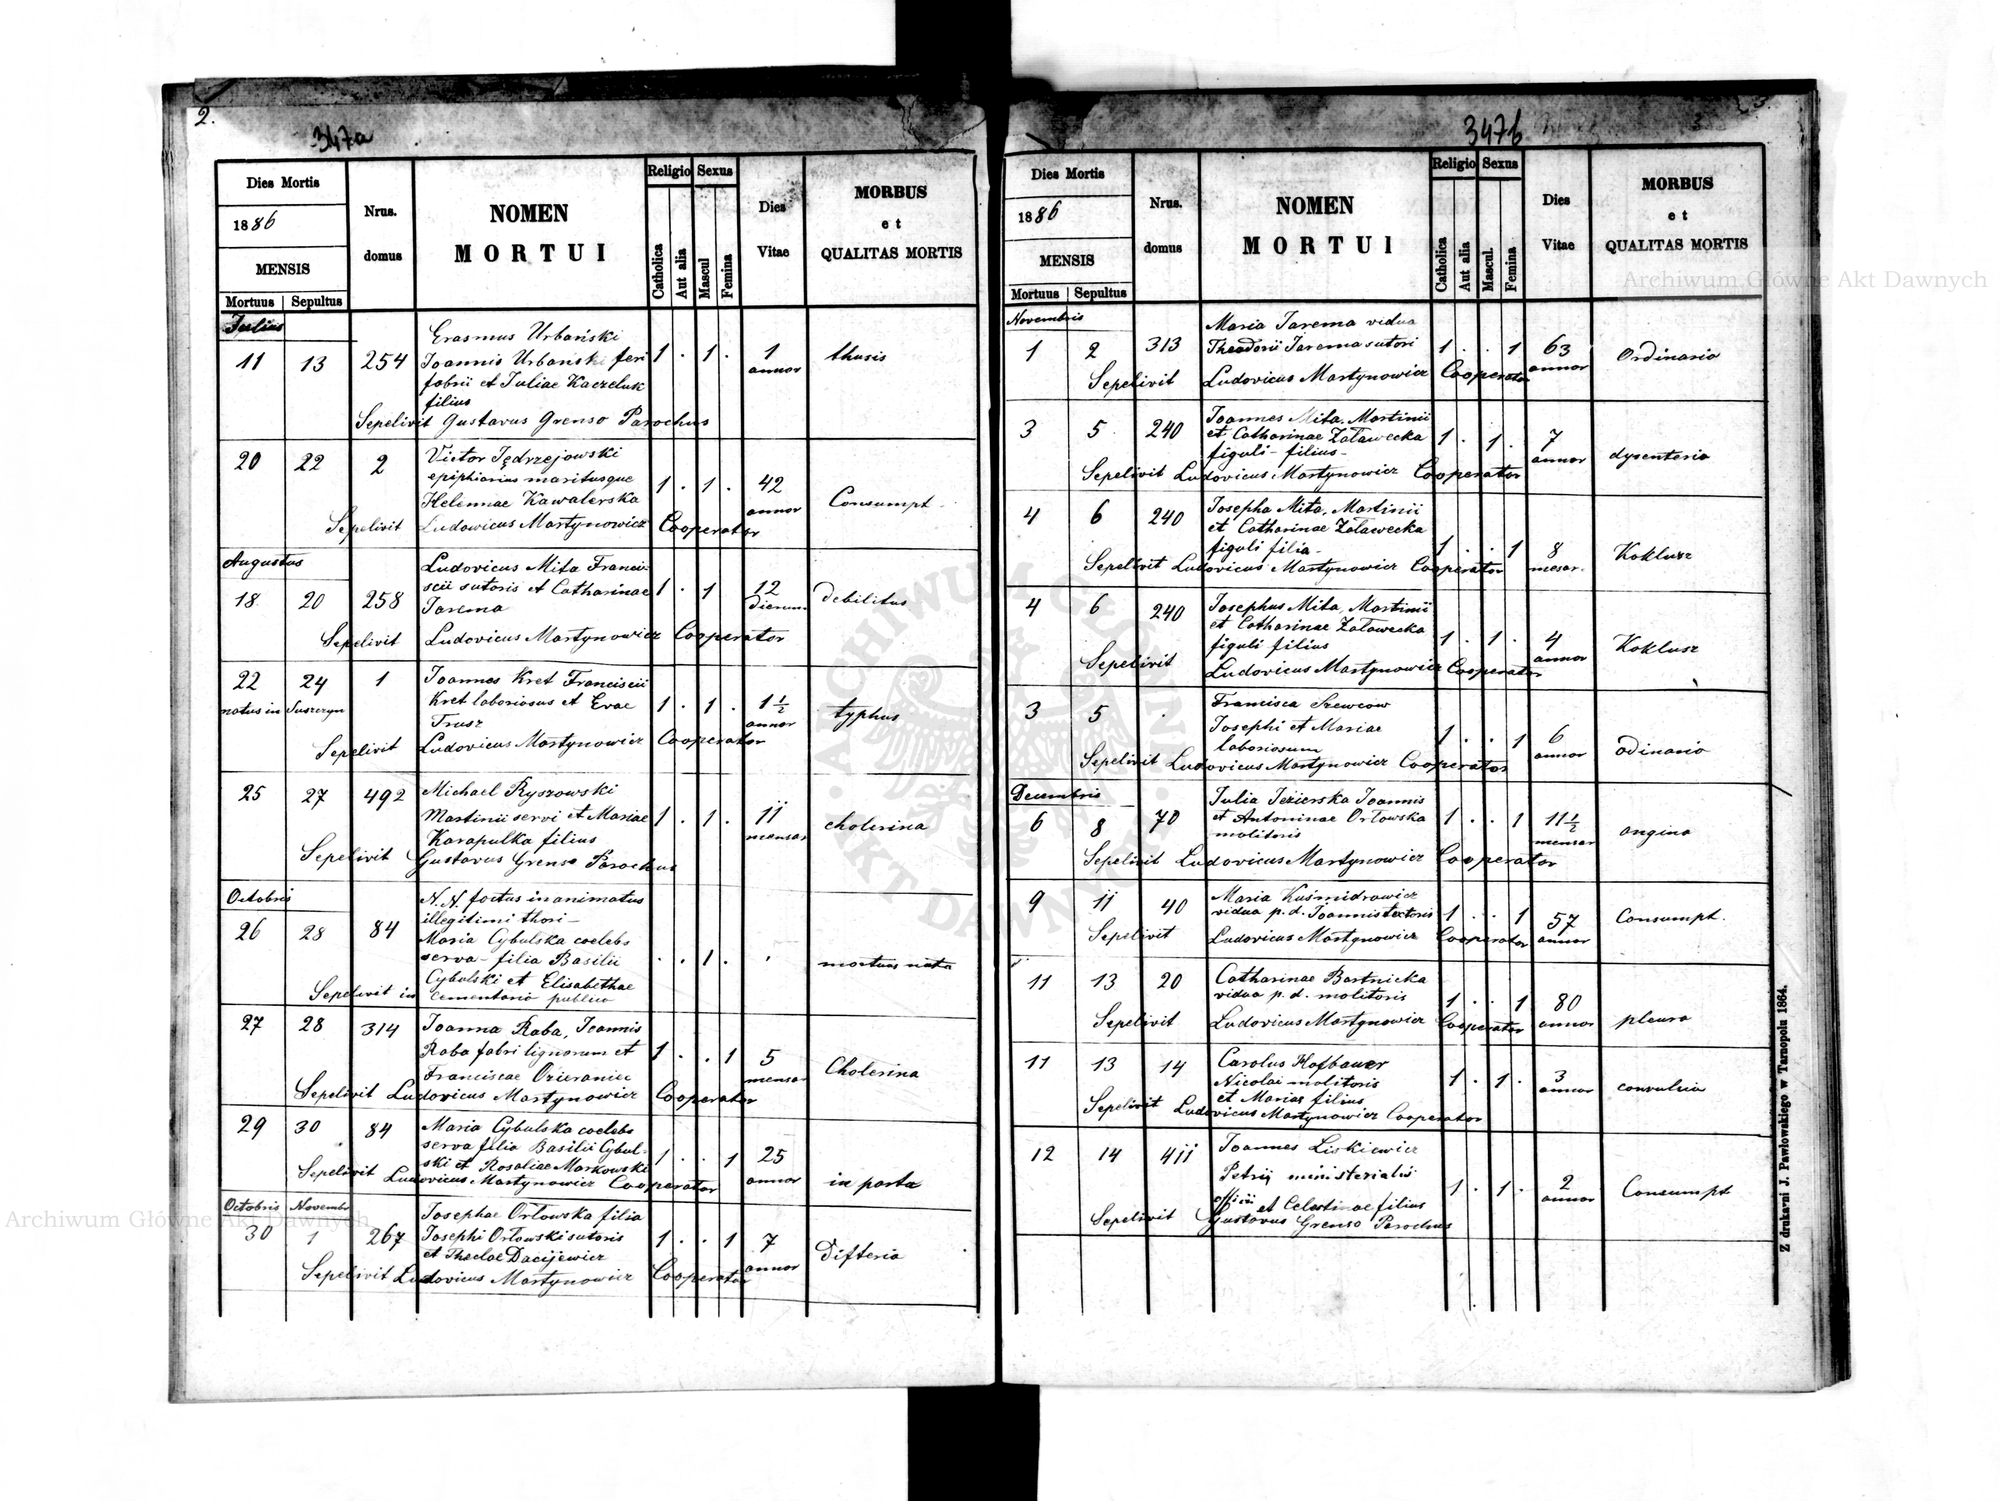 2.
347a
Dies Mortis
1886
MENSIS
Mortuus | Sepultus
Nrus. domus
NOMEN
MORTUI
Religio
Catholica
Aut alia
Sexus
Mascul
Femina
Dies Vitae
MORBUS
et
QUALITAS MORTIS
Julius
Erasmus Urbański
11 13 254 Joannis Urbański feri 1 . 1 . 1 annor thusis
fabrii et Juliae Kaczeluk
filius
Sepelivit Gustavus Grenso Parochus
20 22 2 Victor Jędrzejowski
epiphiarius maritusque 1 . 1 . 42 annor Consumpt.
Helennae Kawalerska
Sepelivit Ludowicus Martynowicz Cooperator
Augustus
Ludovicus Mita Franci-
18 20 258 scii sutoris et Catharinae 1 . 1 12 dierum debilitus
Jarema
Sepelivit Ludovicus Martynowicz Cooperator
22 24 1 Joannes Kret Franciscii
natus in Suszczyn Kret laboriosus et Evae 1 . 1 . 1 1/2 annor typhus
Trusz
Sepelivit Ludovicus Martynowicz Cooperator
25 27 492 Michael Ryszowski
Martinii servi et Mariae 1 . 1 . 11 mensar cholerina
Karapulka filius
Sepelivit Gustavus Grenso Parochus
Octobris
N. N. foetus inanimatus
26 28 84 illegitimi thori -
Maria Cybulska coelebs
serva - filia Basilii . . 1 . mortuus nata
Cybulski et Elisabethae
Sepelivit in cementario publico
27 28 314 Joanna Raba, Joannis
Raba fabri lignorum et 1 . . 1 5 mensar Cholerina
Franciscae Ozieraniec
Sepelivit Ludovicus Martynowicz Cooperator
29 30 84 Maria Cybulska coelebs
serva filia Basilii Cybul-
ski et Rosaliae Markowski 1 . . 1 25 annor in parta
Sepelivit Ludovicus Martynowicz Cooperator
Octobris Novembr
Josephae Orłowska filia
30 1 267 Josephi Orłowski sutoris 1 . . 1 7 annor difteria
et Theclae Dacijewicz
Sepelivit Ludovicus Martynowicz Cooperator
3.
347b
Dies Mortis
1886
MENSIS
Mortuus | Sepultus
Nrus. domus
NOMEN
MORTUI
Religio
Catholica
Aut alia
Sexus
Mascul.
Femina
Dies Vitae
MORBUS
et
QUALITAS MORTIS
Novembris
Maria Jarema vidua
1 2 313 Theodorii Jarema sutori 1 . . 1 63 annor Ordinario
Sepelivit Ludovicus Martynowicz Cooperator
3 5 240 Joannes Mita, Martinii
et Catharinae Załawecka 1 . 1 . 7 annor dysenteria
figuli - filius -
Sepelivit Ludovicus Martynowicz Cooperator
4 6 240 Josepha Mita, Martinii
et Catharinae Załawecka
figuli filia - 1 . . 1 8 mesar. Koklusz
Sepelivit Ludovicus Martynowicz Cooperator
4 6 240 Josephus Mita, Martinii
et Catharinae Załawecka
figuli filius 1 . 1 . 4 annor Koklusz
Sepelivit Ludovicus Martynowicz Cooperator
3 5 . Francisca Szewców
Josephi et Mariae
laboriosum 1 . . 1 6 annor odinario
Sepelivit Ludovicus Martynowicz Cooperator
Decembris
Julia Jezierska Joannis
6 8 70 et Antoninae Orłowska 1 . . 1 11 1/2 mensar angina
molitoris
Sepelivit Ludovicus Martynowicz Cooperator
9 11 40 Maria Kuśmidrowicz
vidua p. d. Joannis textoris 1 . . 1 57 annor Consumpt.
Sepelivit Ludovicus Martynowicz Cooperator
11 13 20 Catharinae Bartnicka
vidua p. d. molitoris 1 . . 1 80 annor pleura
Sepelivit Ludovicus Martynowicz Cooperator
11 13 14 Carolus Hofbauer
Nicolai molitoris 1 . 1 . 3 annor convulsia
et Mariae filius
Sepelivit Ludovicus Martynowicz Cooperator
12 14 411 Joannes Liskiewicz
Petrij ministerialis
officii et Celestinae filius 1 . 1 . 2 annor Consumpt
Sepelivit Gustavus Grenso Parochus
Z drukarni J. Pawłowskiego w Tarnopolu 1864.
Archiwum Główne Akt Dawnych
Archiwum Główne Akt Dawnych
ARCHIWUM GŁÓWNE AKT DAWNYCH